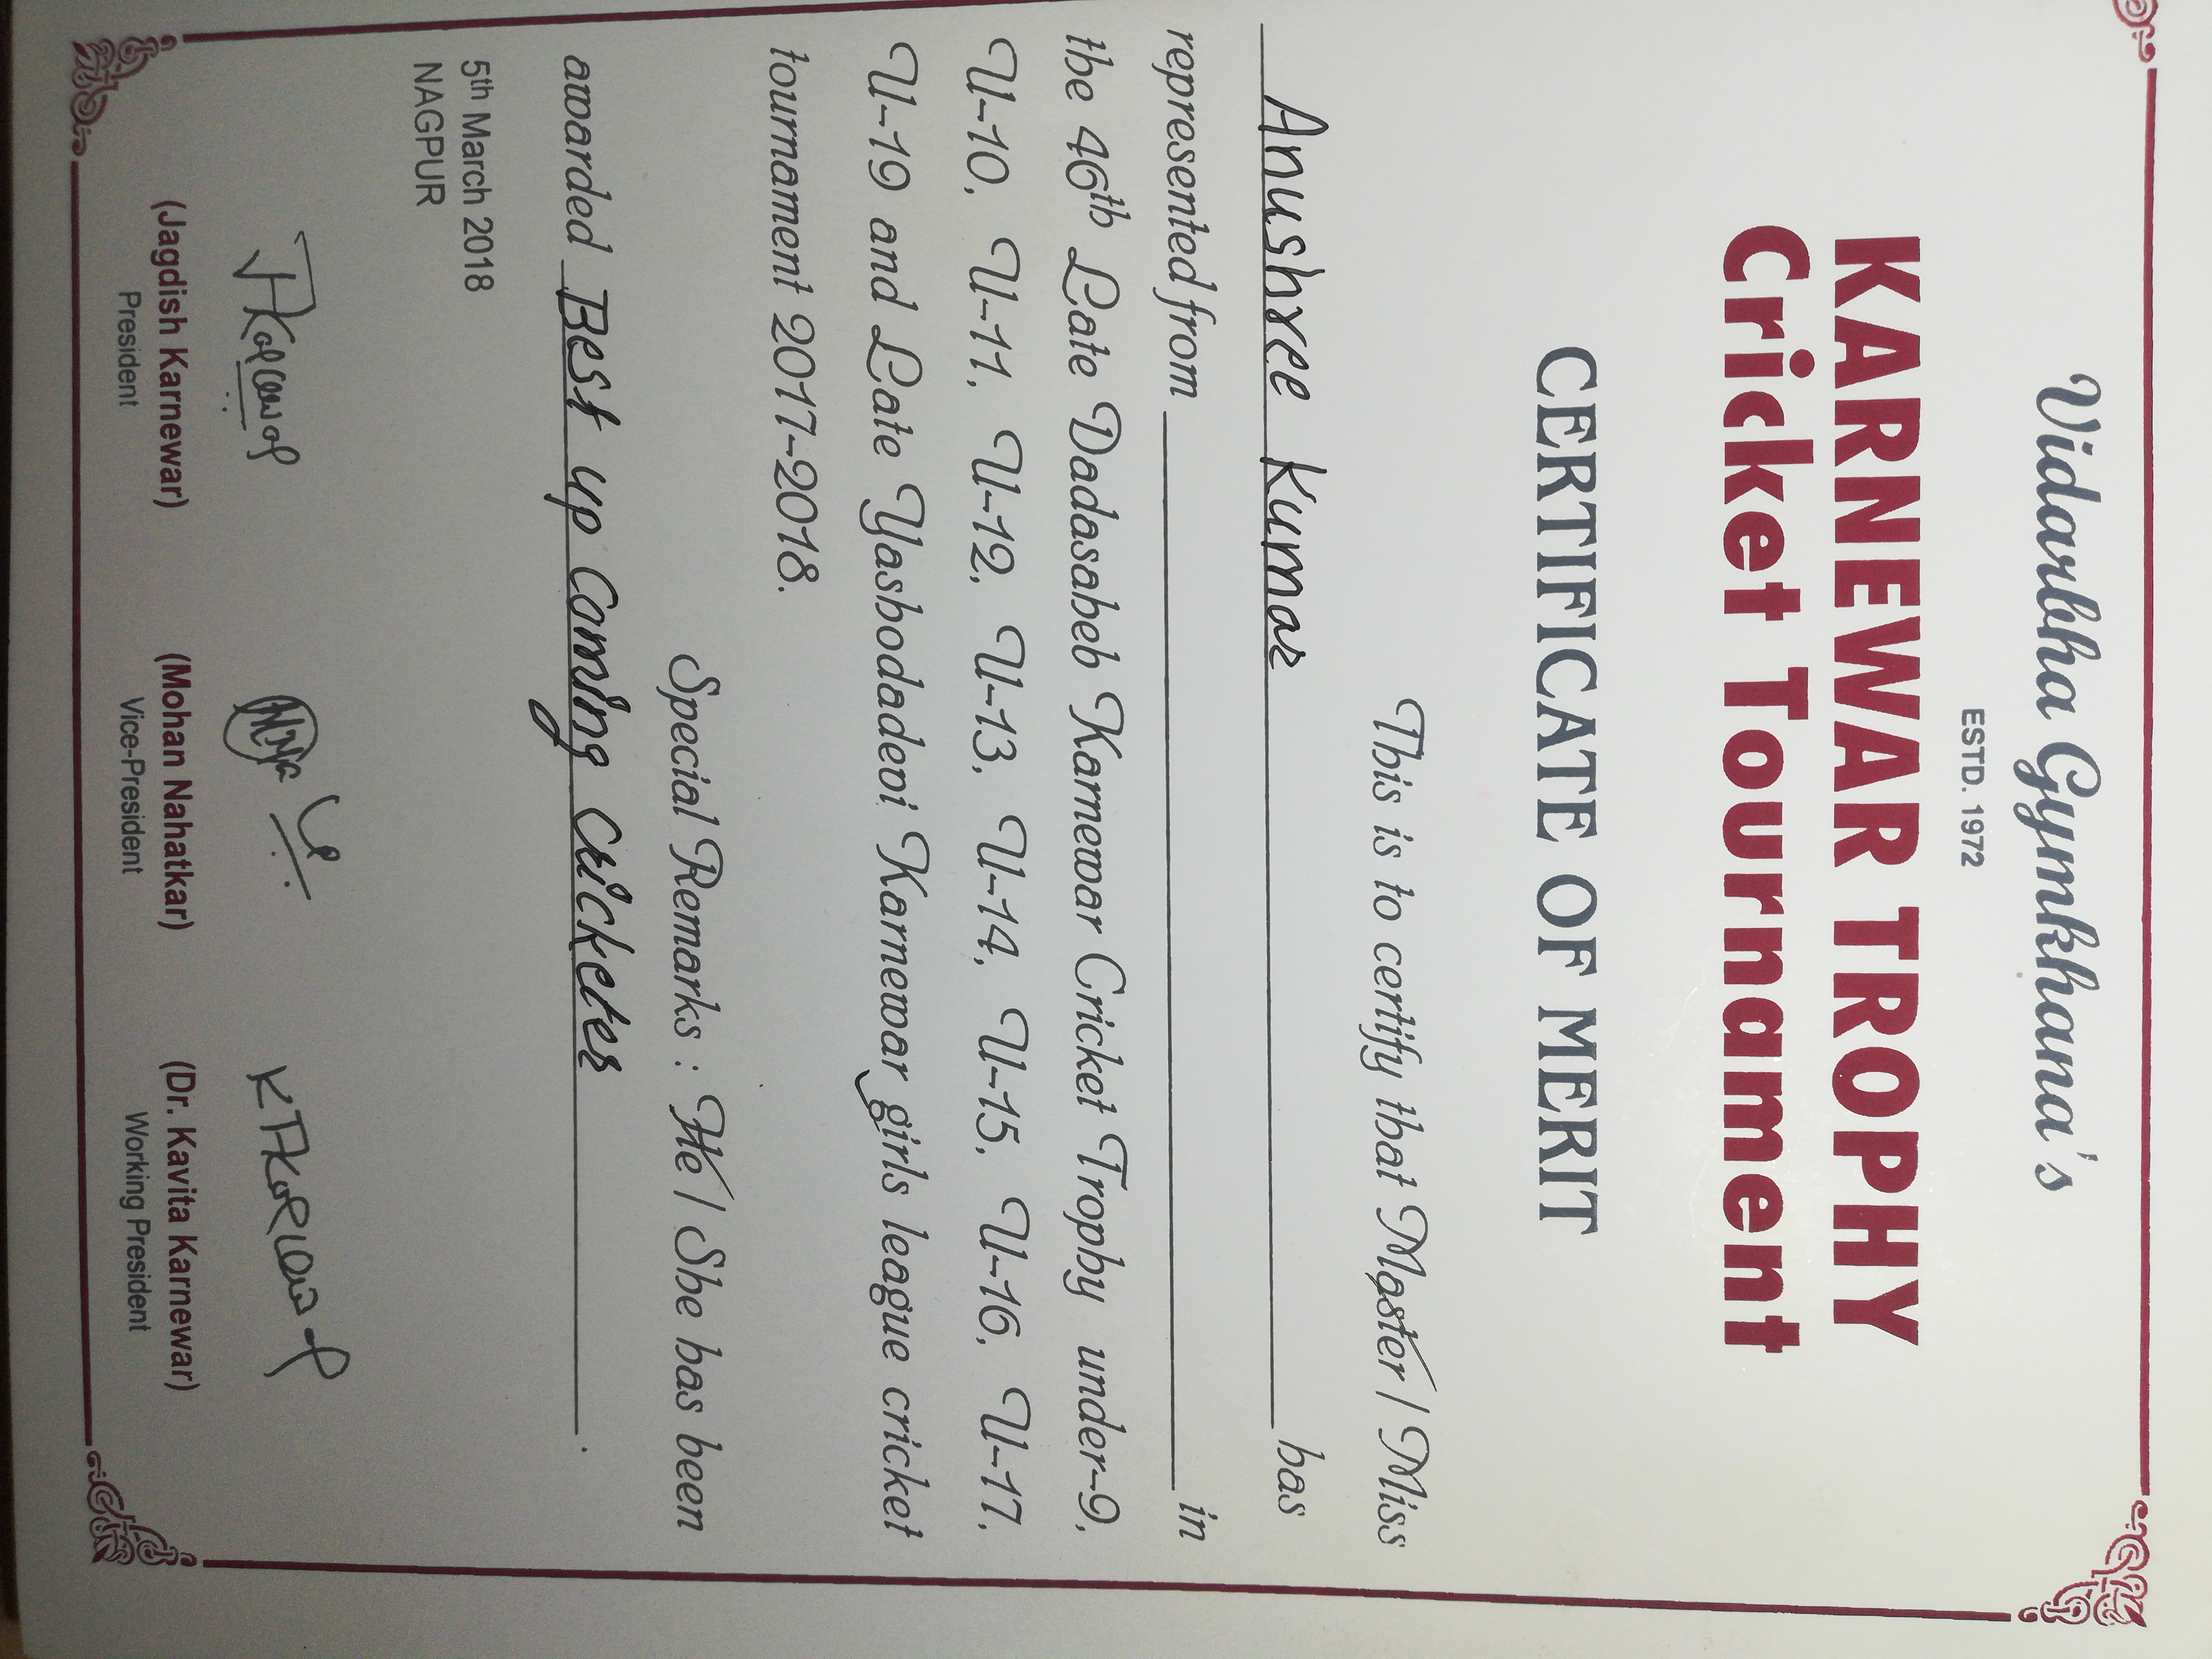 Vidarbha Gymkhana's
ESTD. 1972
KARNEWAR TROPHY
Cricket Tournament
CERTIFICATE OF MERIT
This is to certify that Master / Miss
Anushree Kumar has
represented from in
the 46th Late Dadasaheb Karnewar Cricket Trophy under-9,
U-10, U-11, U-12, U-13, U-14, U-15, U-16, U-17,
U-19 and Late Yashodadevi Karnewar girls league cricket
tournament 2017-2018.
Special Remarks : He / She has been
awarded Best up Coming Cricketer .
5th March 2018
NAGPUR
(Jagdish Karnewar) (Mohan Nahatkar) (Dr. Kavita Karnewar)
President Vice-President Working President